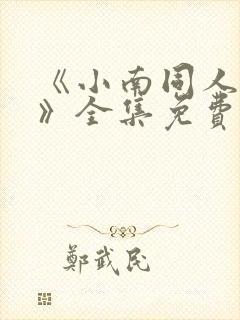 《小南同人
》全集免費
鄭武民